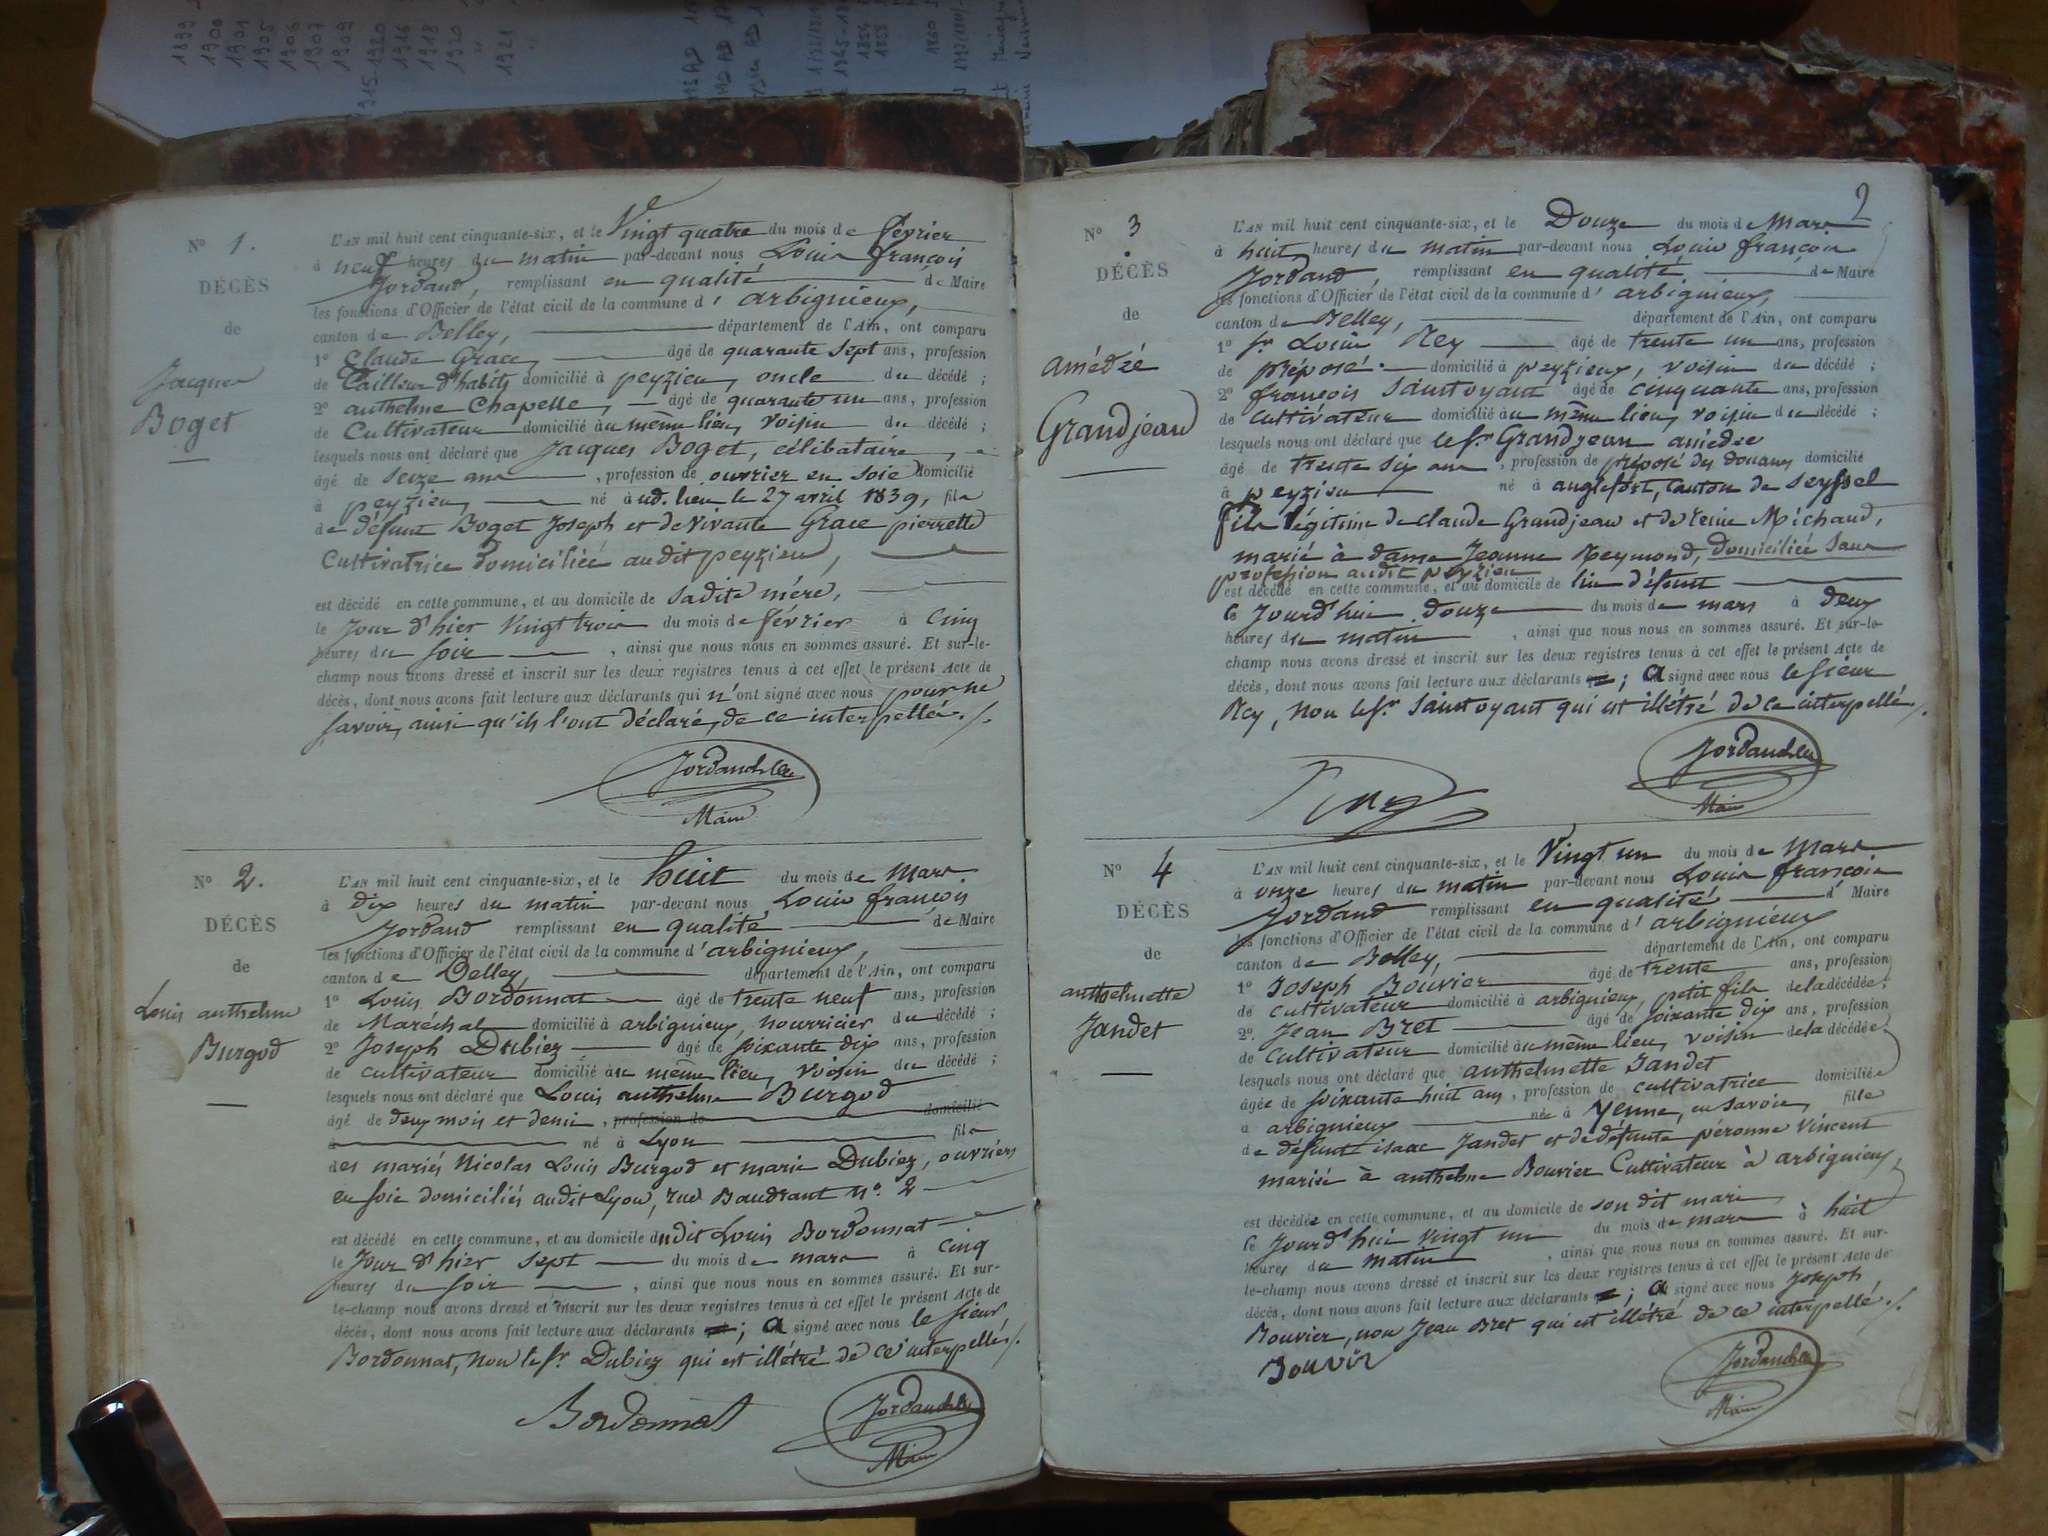 1899
1900
1901
1905
1906
1907
1909
1915-1920
1916
1918
1920
1921
N° 1.
DÉCÈS
de
Jacques
Boget
L'AN mil huit cent cinquante-six, et le Vingt quatre du mois de février
à neuf heures du matin par-devant nous Louis françois
Jordand, remplissant en qualité de Maire
les fonctions d'Officier de l'état civil de la commune d'arbignieux,
canton de Belley, département de l'Ain, ont comparu
1° Claude Grace âgé de quarante sept ans, profession
de tailleur d'habits domicilié à peyzieu, oncle du décédé ;
2° anthelme Chapelle, âgé de quarante un ans, profession
de Cultivateur domicilié au même lieu, voisin du décédé ;
lesquels nous ont déclaré que Jacques Boget, célibataire,
âgé de seize ans, profession de ouvrier en soie domicilié
à peyzieu, né à ud. lieu le 27 avril 1839, fils
de défunt Boget Joseph et de vivante Grace pierrette
Cultivatrice domiciliée audit peyzieu,
est décédé en cette commune, et au domicile de sadite mère,
le jour d'hier vingt trois du mois de février à cinq
heures du soir, ainsi que nous nous en sommes assuré. Et sur-le-
champ nous avons dressé et inscrit sur les deux registres tenus à cet effet le présent Acte de
décès, dont nous avons fait lecture aux déclarants qui n'ont signé avec nous pour ne
savoir, ainsi qu'ils l'ont déclaré, de ce interpellés./.
Maire
N° 2.
DÉCÈS
de
Louis anthelme
Burgod
L'AN mil huit cent cinquante-six, et le huit du mois de mars
à dix heures du matin par-devant nous Louis françois
Jordand remplissant en qualité de Maire
les fonctions d'Officier de l'état civil de la commune d'arbignieux,
canton de Belley, département de l'Ain, ont comparu
1° Louis Bordonnat âgé de trente neuf ans, profession
de Maréchal domicilié à arbignieux, nourricier du décédé ;
2° Joseph Dubiez âgé de soixante dix ans, profession
de cultivateur domicilié au même lieu, voisin du décédé ;
lesquels nous ont déclaré que Louis anthelme Burgod
âgé de deux mois et demi, profession de domicilié
à né à Lyon fils
des mariés Nicolas Louis Burgod et marie Dubiez, ouvriers
en soie domiciliés audit Lyon, rue Baudrant n°. 2
est décédé en cette commune, et au domicile dudit Louis Bordonnat
le jour d'hier sept du mois de mars à cinq
heures du soir, ainsi que nous nous en sommes assuré. Et sur-
le-champ nous avons dressé et inscrit sur les deux registres tenus à cet effet le présent Acte de
décès, dont nous avons fait lecture aux déclarants ; a signé avec nous le sieur
Bordonnat, non le sr Dubiez qui est illétré de ce interpellés./.
Bordonnat
Maire
2
N° 3
DÉCÈS
de
amédéé
Grandjean
L'AN mil huit cent cinquante-six, et le Douze du mois de Mars
à huit heures du matin par-devant nous Louis françois
Jordand, remplissant en qualité de Maire
les fonctions d'Officier de l'état civil de la commune d'arbignieux,
canton de Belley, département de l'Ain, ont comparu
1° sr Louis Rey âgé de trente un ans, profession
de préposé domicilié à peyzieux, voisin du décédé ;
2° françois Saintoyant âgé de cinquante ans, profession
de cultivateur domicilié au même lieu, voisin du décédé ;
lesquels nous ont déclaré que le sr Grandjean amédée
âgé de trente six ans, profession de préposé des douanes domicilié
à peyzieu né à anglefort, canton de seyssel
fils légitime de claude Grandjean et de reine Michaud,
marié à dame Jeanne Reymond, domiciliée sans
profession audit peyzieu
est décédé en cette commune, et au domicile de lui défunt
le jourd'hui douze du mois de mars à deux
heures du matin, ainsi que nous nous en sommes assuré. Et sur-le-
champ nous avons dressé et inscrit sur les deux registres tenus à cet effet le présent Acte de
décès, dont nous avons fait lecture aux déclarants ; a signé avec nous le sieur
Rey, non le sr Saintoyant qui est illétré de ce interpellé./.
Rey
Maire
N° 4
DÉCÈS
de
anthelmette
Jandet
L'AN mil huit cent cinquante-six, et le Vingt un du mois de Mars
à onze heures du matin par-devant nous Louis françois
Jordand remplissant en qualité d Maire
les fonctions d'Officier de l'état civil de la commune d'arbignieux
canton de Belley, département de l'Ain, ont comparu
1° Joseph Bouvier âgé de trente ans, profession
de cultivateur domicilié à arbignieux, petit fils de la décédée ;
2° Jean Bret âgé de soixante dix ans, profession
de cultivateur domicilié au même lieu, voisin de la décédée
lesquels nous ont déclaré que anthelmette Jandet
âgée de soixante huit ans, profession de cultivatrice domiciliée
à arbignieux née à Yenne, en Savoie, fille
de défunt isaac Jandet et de défunte péronne Vincent
mariée à anthelme Bouvier Cultivateur à arbignieux,
est décédée en cette commune, et au domicile de son dit mari
le jourd'hui vingt un du mois de mars à huit
heures du matin, ainsi que nous nous en sommes assuré. Et sur-
le-champ nous avons dressé et inscrit sur les deux registres tenus à cet effet le présent Acte de
décès, dont nous avons fait lecture aux déclarants ; a signé avec nous Joseph
Bouvier, non Jean Bret qui est illétré de ce interpellé./.
Bouvier
Maire